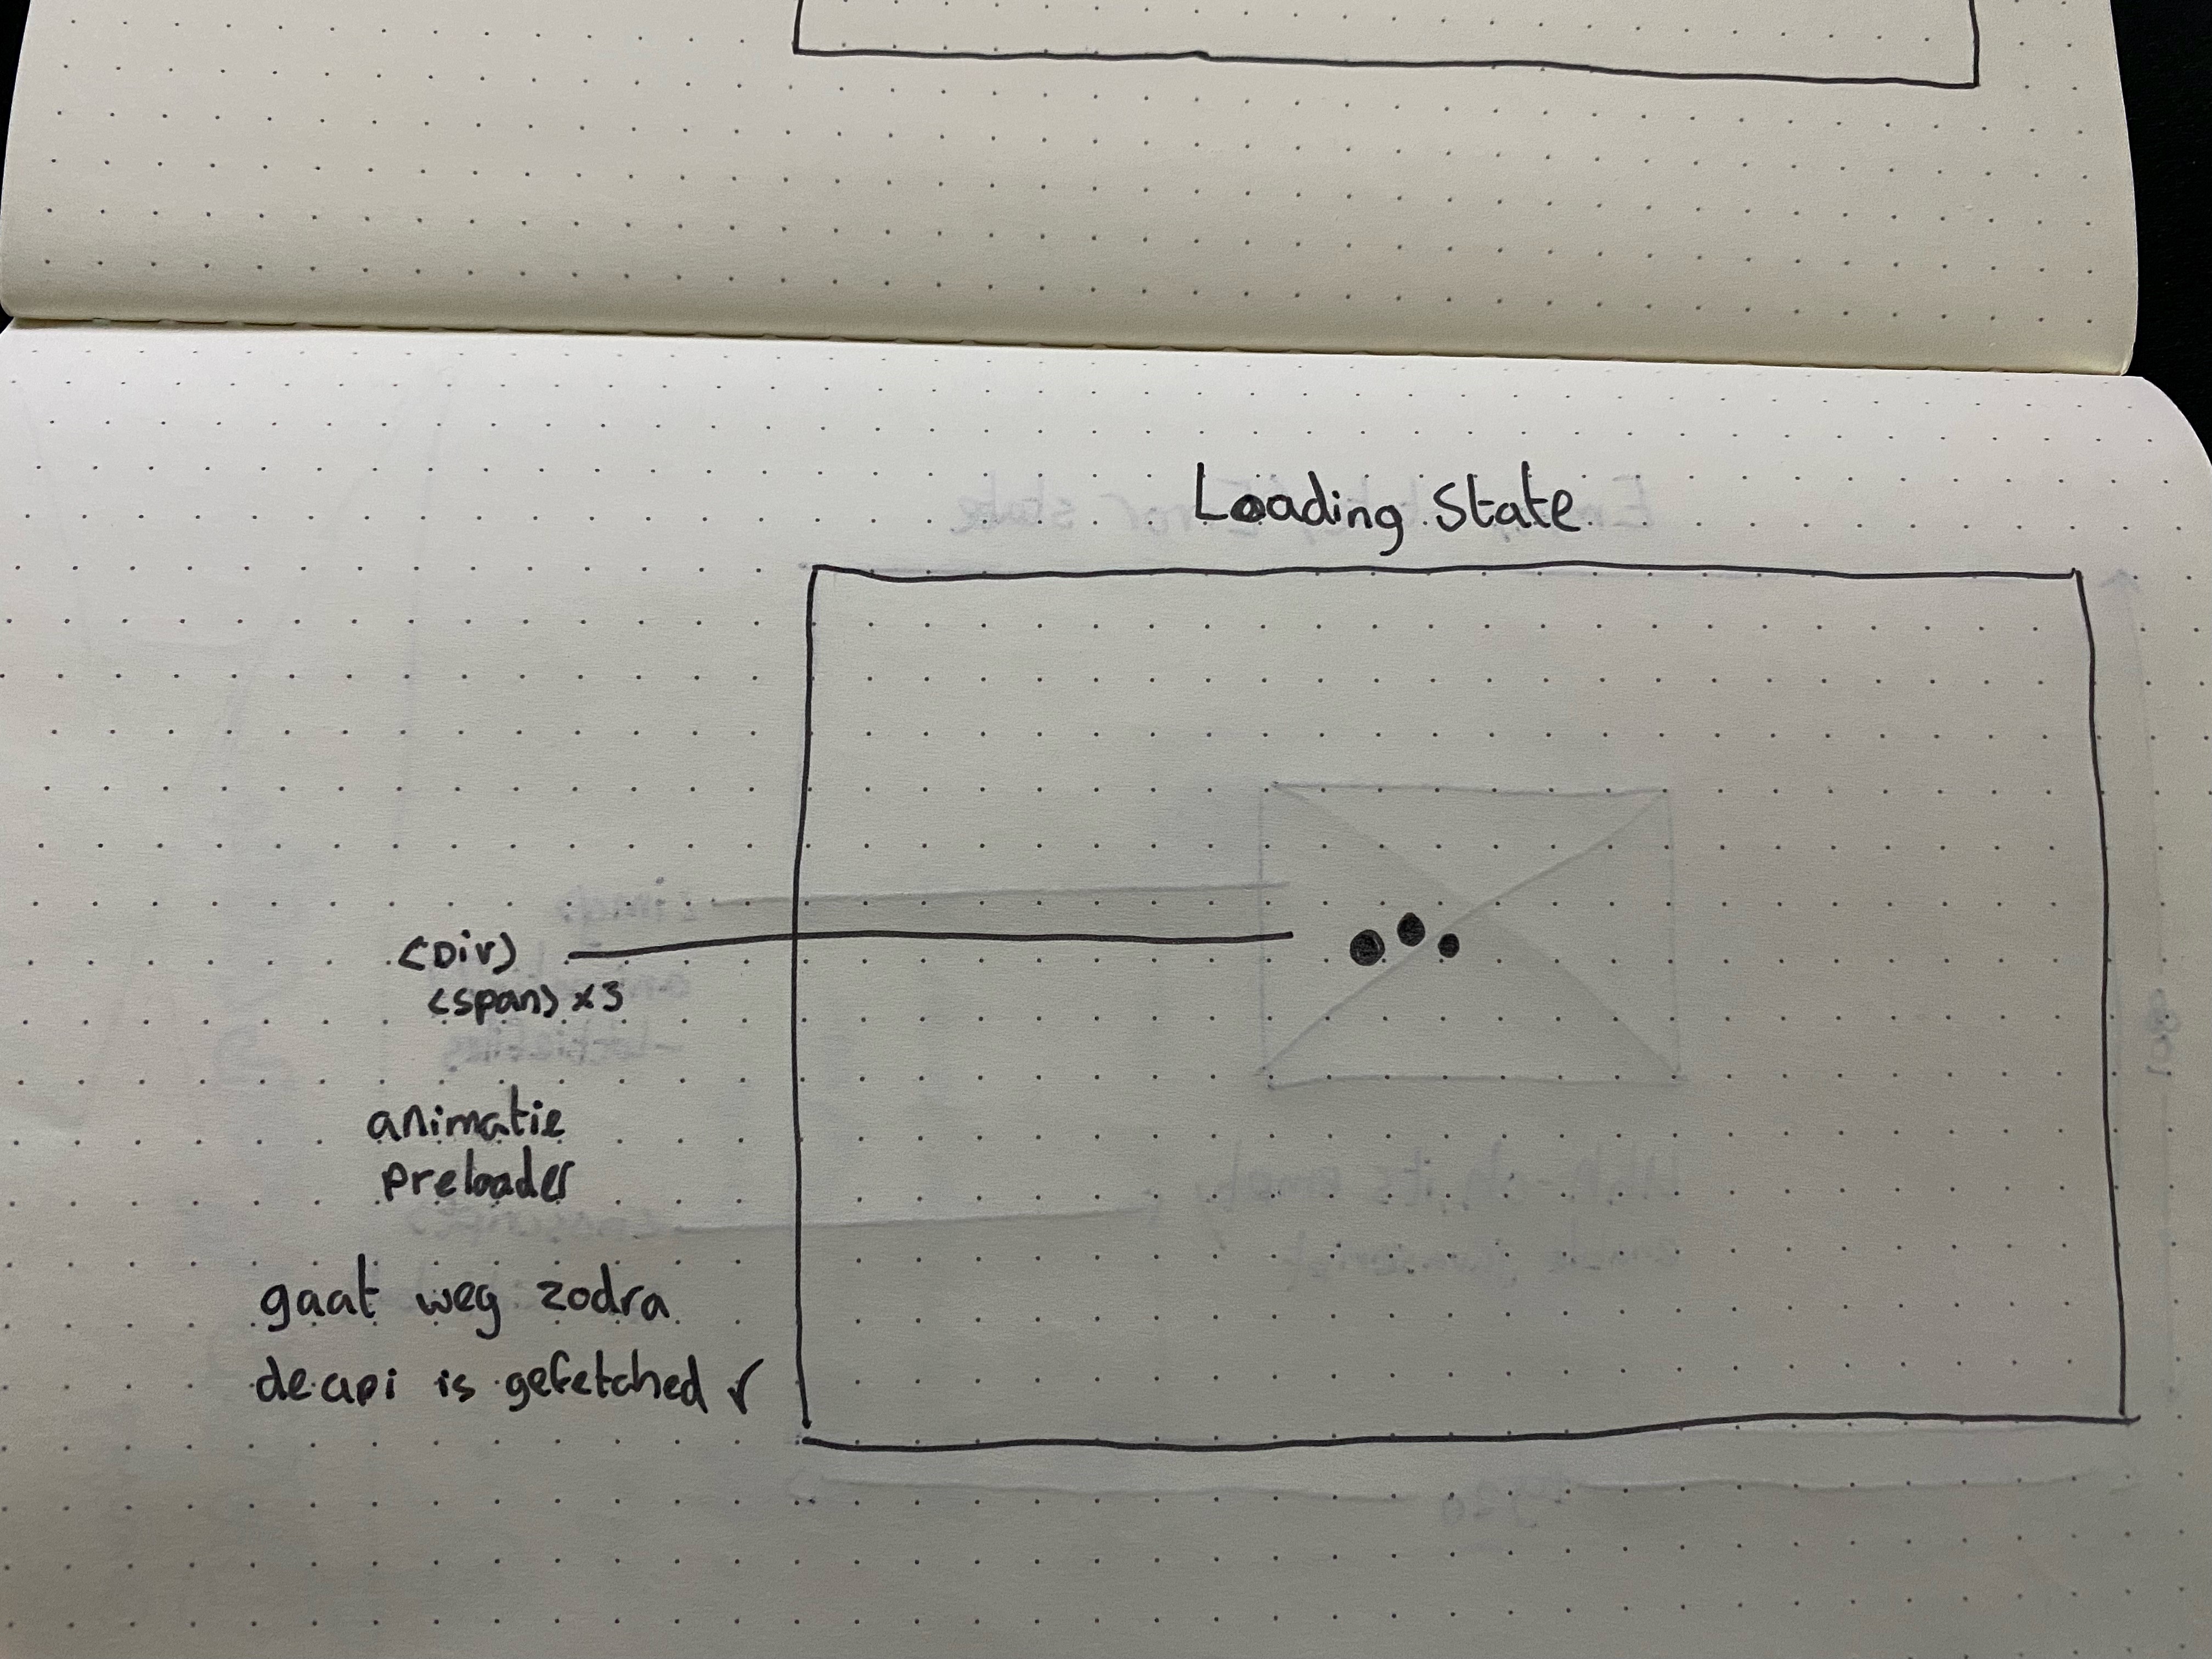 Loading state
<Div>
<span> x3
animatie
preloader
gaat weg zodra
de api is gefetched ✓